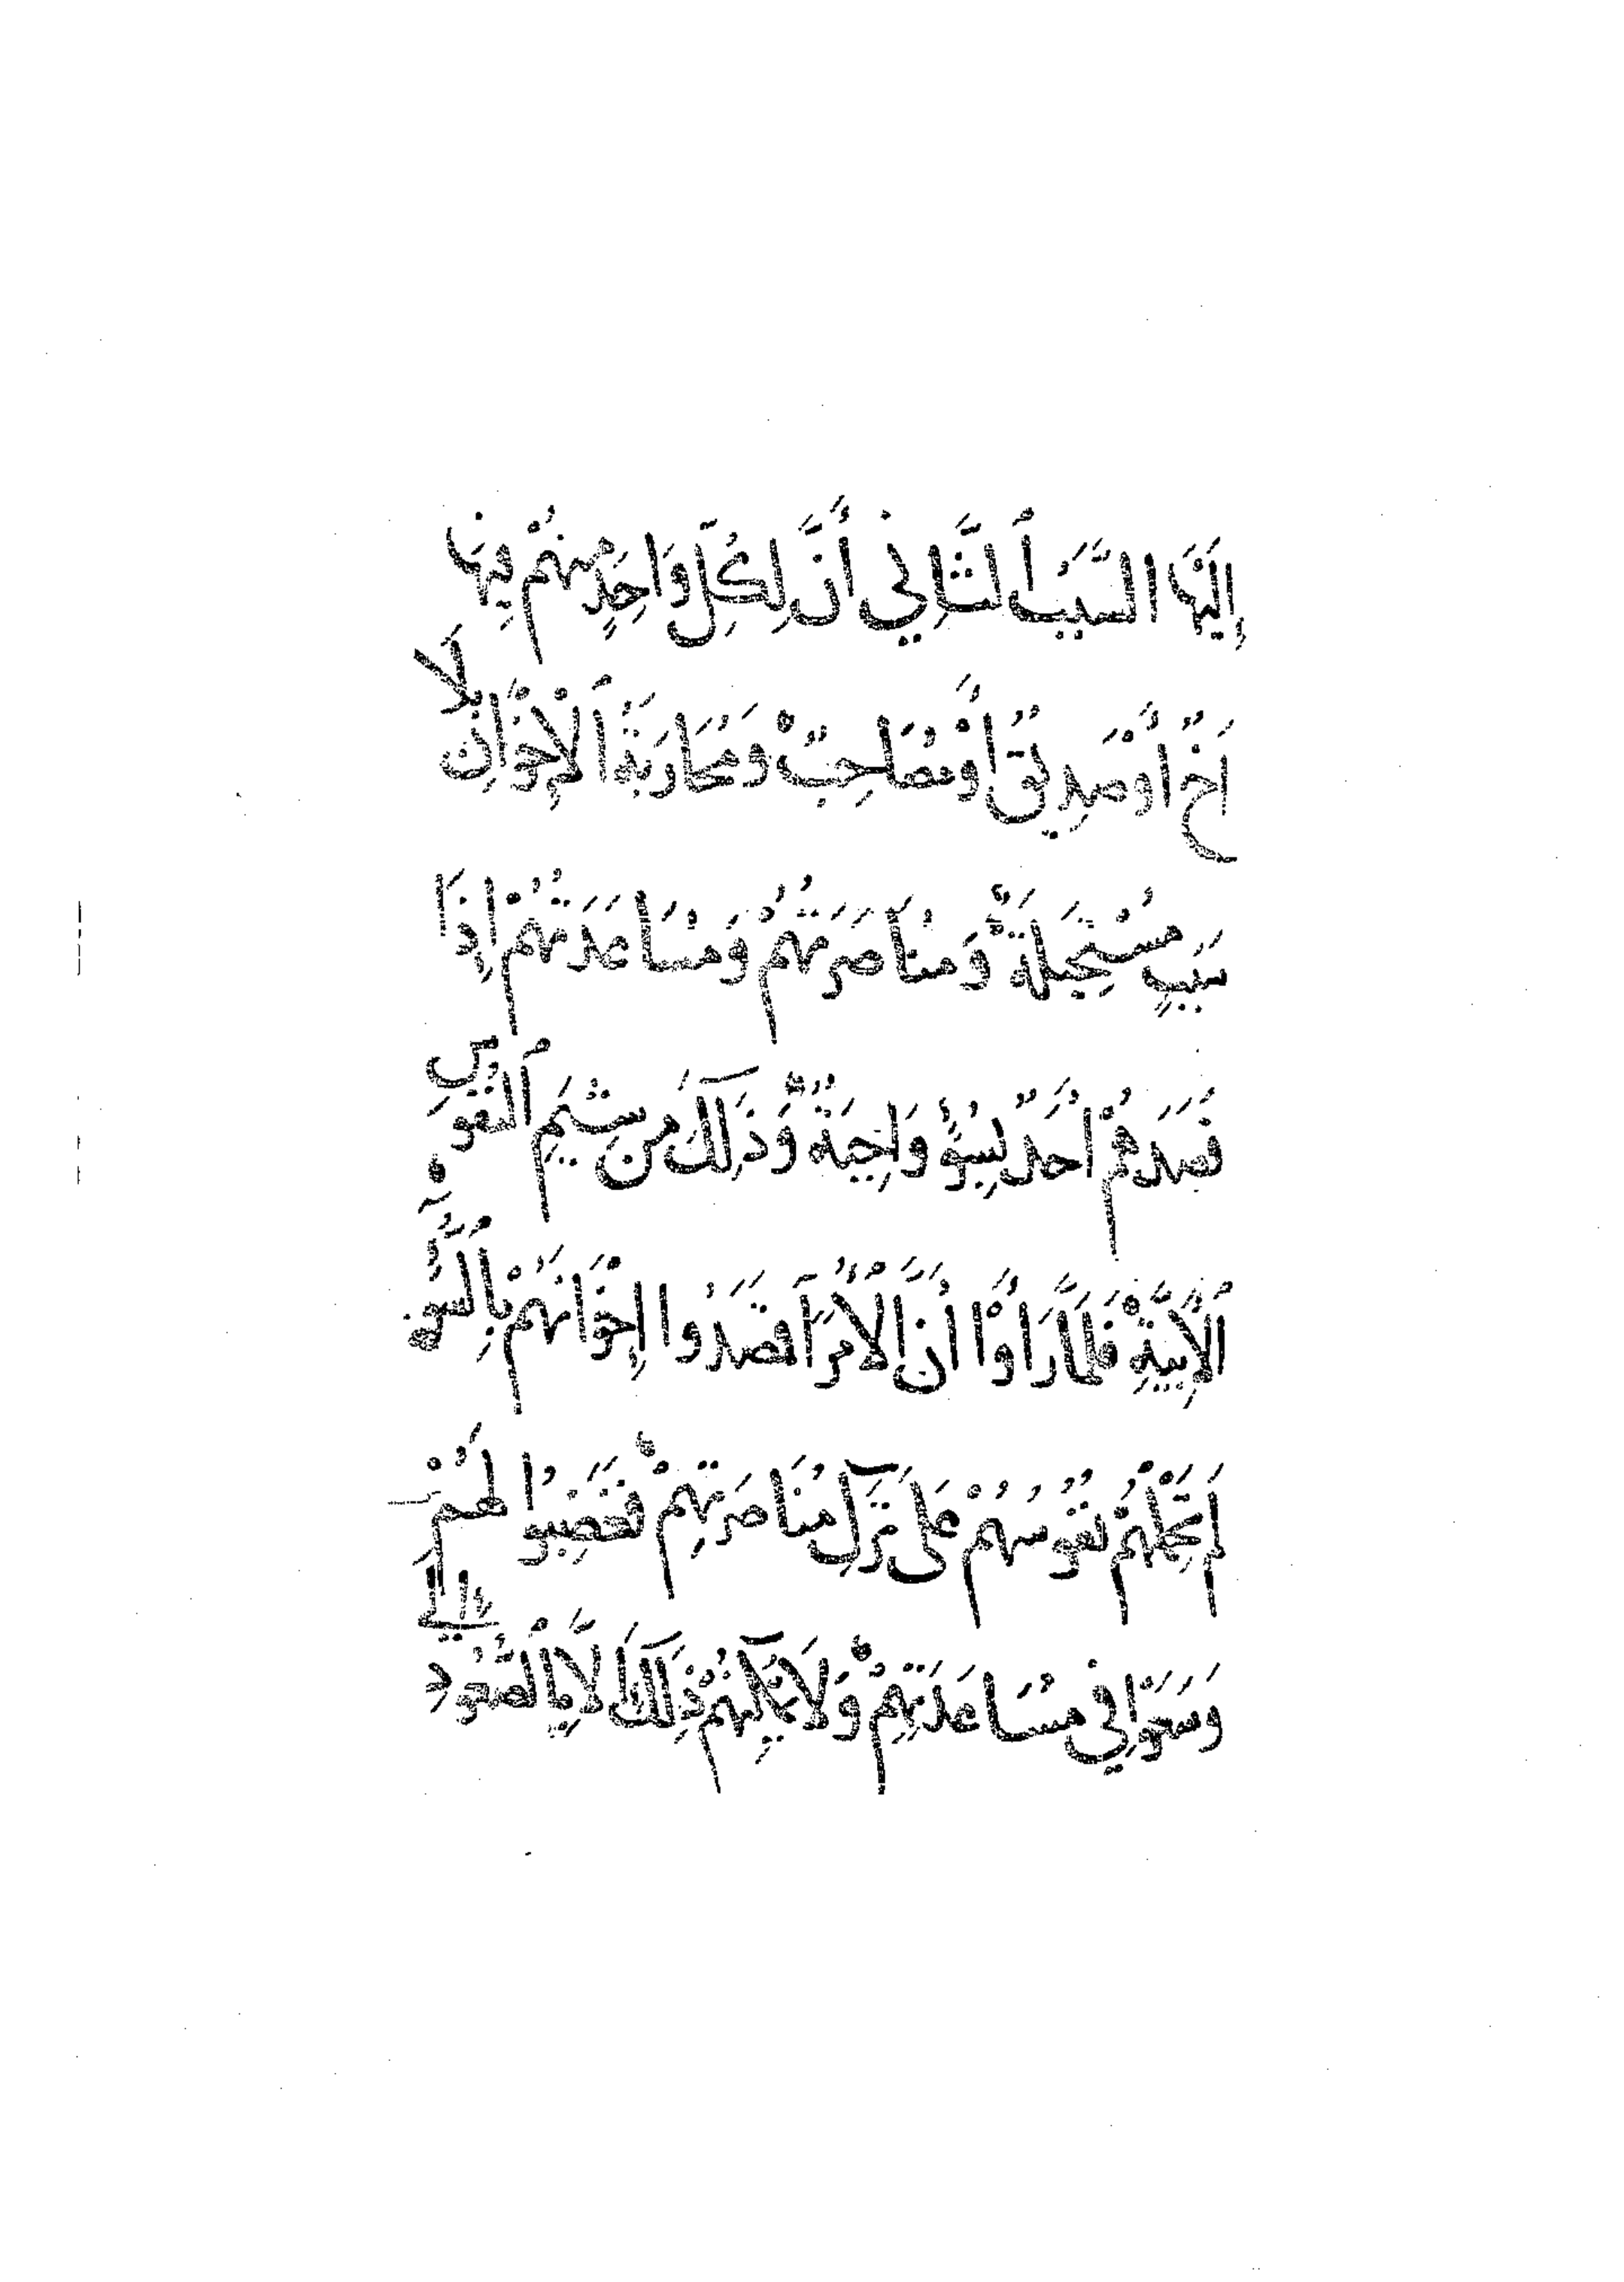 إِلَيْهَا السَّبَبُ ٱلثَّانِي أَنَّ لِكُلِّ وَاحِدٍ مِنْهُمْ فِيهَا
أَخٌ أَوْ صَدِيقٌ أَوْ مُصَاحِبٌ وَمُحَارَبَةُ ٱلْإِخْوَانِ بِلَا
سَبَبٍ مُسْتَحِيلَةٌ وَمُنَاصَرَتُهُمْ وَمُسَاعَدَتُهُمْ إِذَا
قَصَدَهُمْ أَحَدٌ بِسُوءٍ وَاجِبَةٌ وَذَلِكَ مِنْ شِيَمِ ٱلنُّفُوسِ
ٱلْأَبِيَّةِ فَلَمَّا رَأَوْا أَنَّ ٱلْأُمَرَآ قَصَدُوا إِخْوَانَهُمْ بِٱلسُّوءِ
لَمْ تَحْمِلْهُمْ نُفُوسُهُمْ عَلَى تَرْكِ مُنَاصَرَتِهِمْ فَغَضِبُوا لَهُمْ
وَسَعَوْا فِي مُسَاعَدَتِهِمْ وَلَا يُمْكِنُهُمْ ذَلِكَ إِلَّا بِٱلصُّعُودِ إِلَى